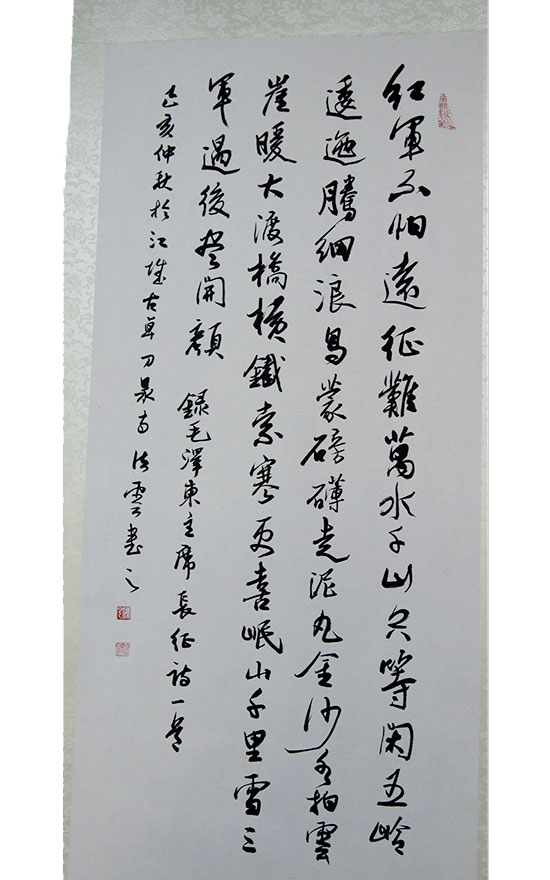 紅軍不怕遠征難萬水千山只等閑五岭
逶迤騰細浪烏蒙磅礴走泥丸金沙水拍雲
崖暖大渡橋橫鐵索寒更喜岷山千里雪三
軍過後尽開顏 録毛澤東主席長征詩一首
己亥仲秋於江城古草刀泉寺法雲書之